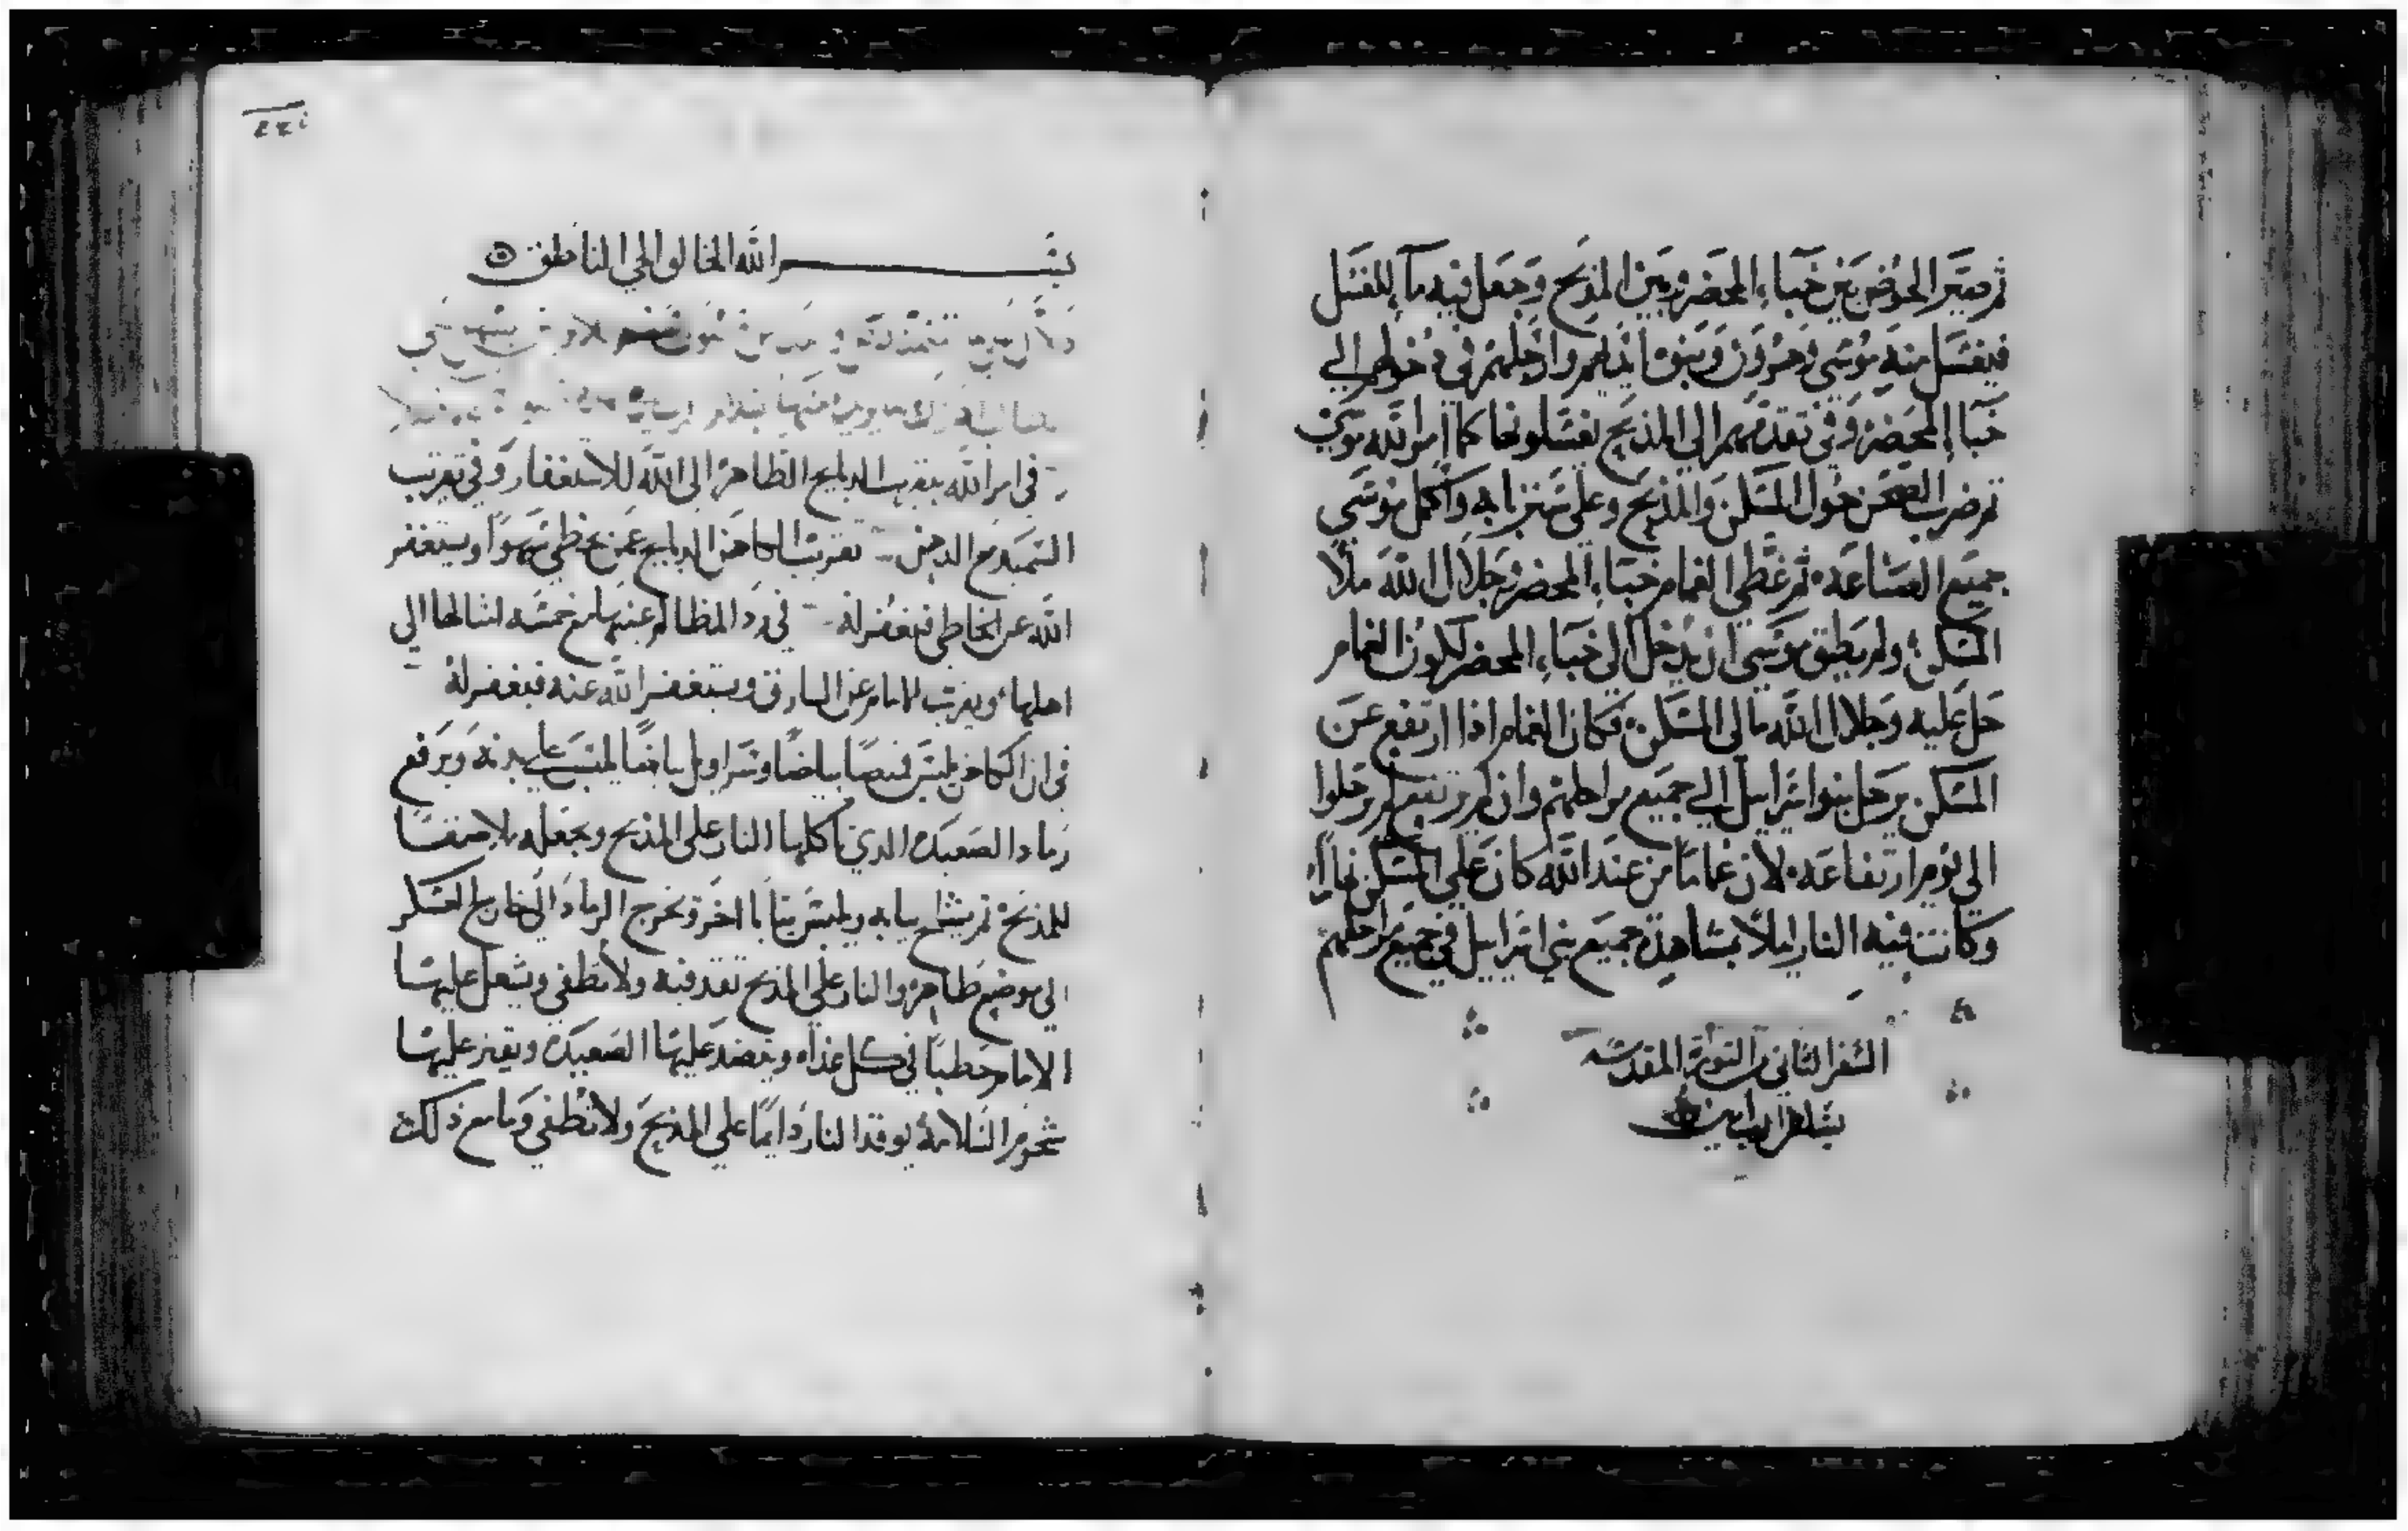 ثم صير الحوض بين خباء المحضر وبين المذبح وجعل فيه ماء للغسل
فيغسل منه موسى وهرون وبنوه ايديهم وارجلهم في دخولهم الي
خباء المحضر وفي تقدمهم الى المذبح يغسلونها كما امر الله موسي
ثم ضرب الصحن حول المسكن والمذبح وعلى ستر بابه واكمل موسي
جميع الصناعة ثم غطي الغمام خباء المحضر وجلال الله ملأ
المسكن ولم يطيق موسى ان يدخل الى خباء المحضر لكون الغمام
حل عليه وجلال الله مالى المسكن فكان الغمام اذا ارتفع عن
المسكن يرحل بنوا اسراييل الي جميع مراحلهم وان لم يرتفع لم يرحلوا
الى يوم ارتفاعه لان غماما من عند الله كان على المسكن نهارا
وكانت فيه النار ليلا بمشاهدة جميع بني اسراييل في جميع مراحلهم
السفر الثاني من التوراة المقدسه
بسلام الرب امين
بسم الله الخالق الحي الناطق
في امر الله بتقريب الدبايح الطاهرة الى الله للاستغفار وفي تقريب
السميد مع الدهن تقريب الكاهن الدبايح عمن يخطي سهوا ويستغفر
الله عن الخاطي فيغفر له في رد المظالم عنها مع خمسه امثالها الي
اهلها ويقرب الامام عن السارق ويستغفر الله عنه فيغفر له
في ان الكاهن يلبس قميصا بياضا وسراويل بياضا يلبس علي بدنه ويرفع
رماد الصعيدة الدي تاكلها النار على المذبح ويجعله ملاصقا
للمذبح ثم يشلح تيابه ويلبس تيابا اخر ويخرج الرماد الى خارج العسكر
الى موضع طاهر والنار على المذبح تقد فيه ولا تطفي ويشعل عليها
الامام حطبا في كل غداه وينضد عليها الصعيدة ويقتر عليها
شحوم السلامة يوقد النار دايما علي المذبح ولا تطفي وما مع ذلك